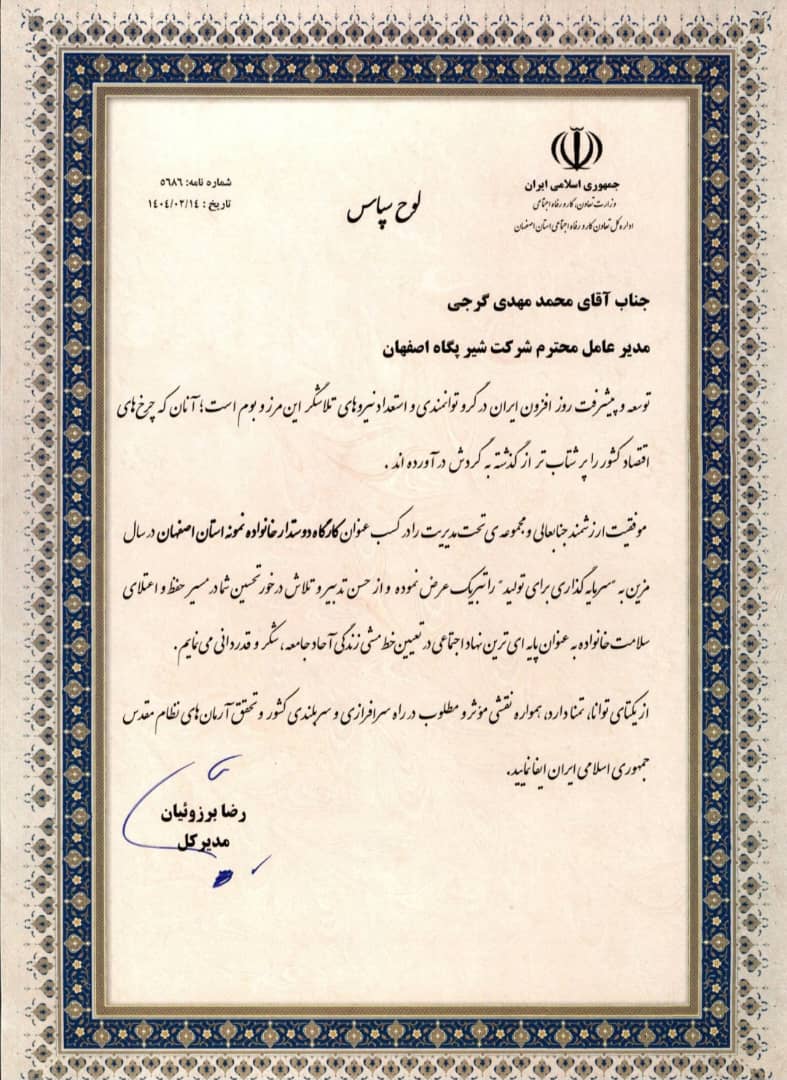 جمهوری اسلامی ایران
وزارت تعاون، کار و رفاه اجتماعی
اداره کل تعاون کار و رفاه اجتماعی استان اصفهان
لوح سپاس
شماره نامه: ٥٦٨٦
تاریخ : ١٤٠٤/٠٣/١٤
جناب آقای محمد مهدی گرجی
مدیر عامل محترم شرکت شیر پگاه اصفهان
توسعه و پیشرفت روز افزون ایران در گرو توانمندی و استعداد نیروهای تلاشگر این مرز و بوم است؛ آنان که چرخ‌های
اقتصاد کشور را پر شتاب تر از گذشته به گردش در آورده اند .
موفقیت ارزشمند جنابعالی و مجموعه ی تحت مدیریت را در کسب عنوان کارگاه دوستدار خانواده نمونه استان اصفهان در سال
مزین به "سرمایه گذاری برای تولید" را تبریک عرض نموده و از حسن تدبیر و تلاش درخور تحسین شما در مسیر حفظ و اعتلای
سلامت خانواده به عنوان پایه ای ترین نهاد اجتماعی در تعیین خط مشی زندگی آحاد جامعه، تشکر و قدردانی می نمایم.
از یکتای توانا، تمنا دارد، همواره نقشی مؤثر و مطلوب در راه سرافرازی و سربلندی کشور و تحقق آرمان‌های نظام مقدس
جمهوری اسلامی ایران ایفا نمایید.
رضا برزوئیان
مدیر کل